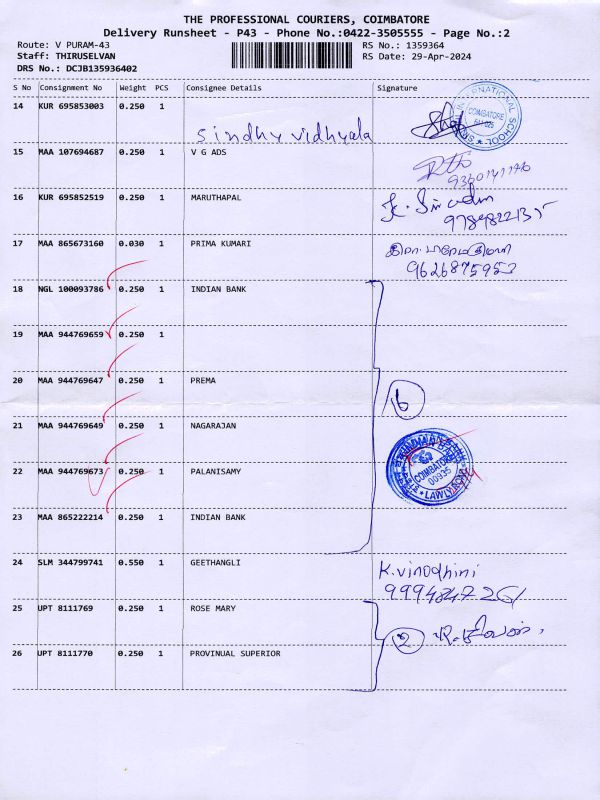 THE PROFESSIONAL COURIERS, COIMBATORE
Delivery Runsheet - P43 - Phone No.:0422-3505555 - Page No.:2
Route: V PURAM-43 RS No.: 1359364
Staff: THIRUSELVAN RS Date: 29-Apr-2024
DRS No.: DCJB135936402
S No Consignment No Weight PCS Consignee Details Signature
14 KUR 695853003 0.250 1
Sindhu vidhyala
INTERNATIONAL SCHOOL
COIMBATORE
15 MAA 107694687 0.250 1 V G ADS
16 KUR 695852519 0.250 1 MARUTHAPAL
17 MAA 865673160 0.030 1 PRIMA KUMARI
9626875953
18 NGL 100093786 0.250 1 INDIAN BANK
19 MAA 944769659 0.250 1
20 MAA 944769647 0.250 1 PREMA
6
21 MAA 944769649 0.250 1 NAGARAJAN
22 MAA 944769673 0.250 1 PALANISAMY
INDIAN BANK
COIMBATORE
00935
23 MAA 865222214 0.250 1 INDIAN BANK
24 SLM 344799741 0.550 1 GEETHANGLI
K.vinodhini
9994847261
25 UPT 8111769 0.250 1 ROSE MARY
2
26 UPT 8111770 0.250 1 PROVINUAL SUPERIOR